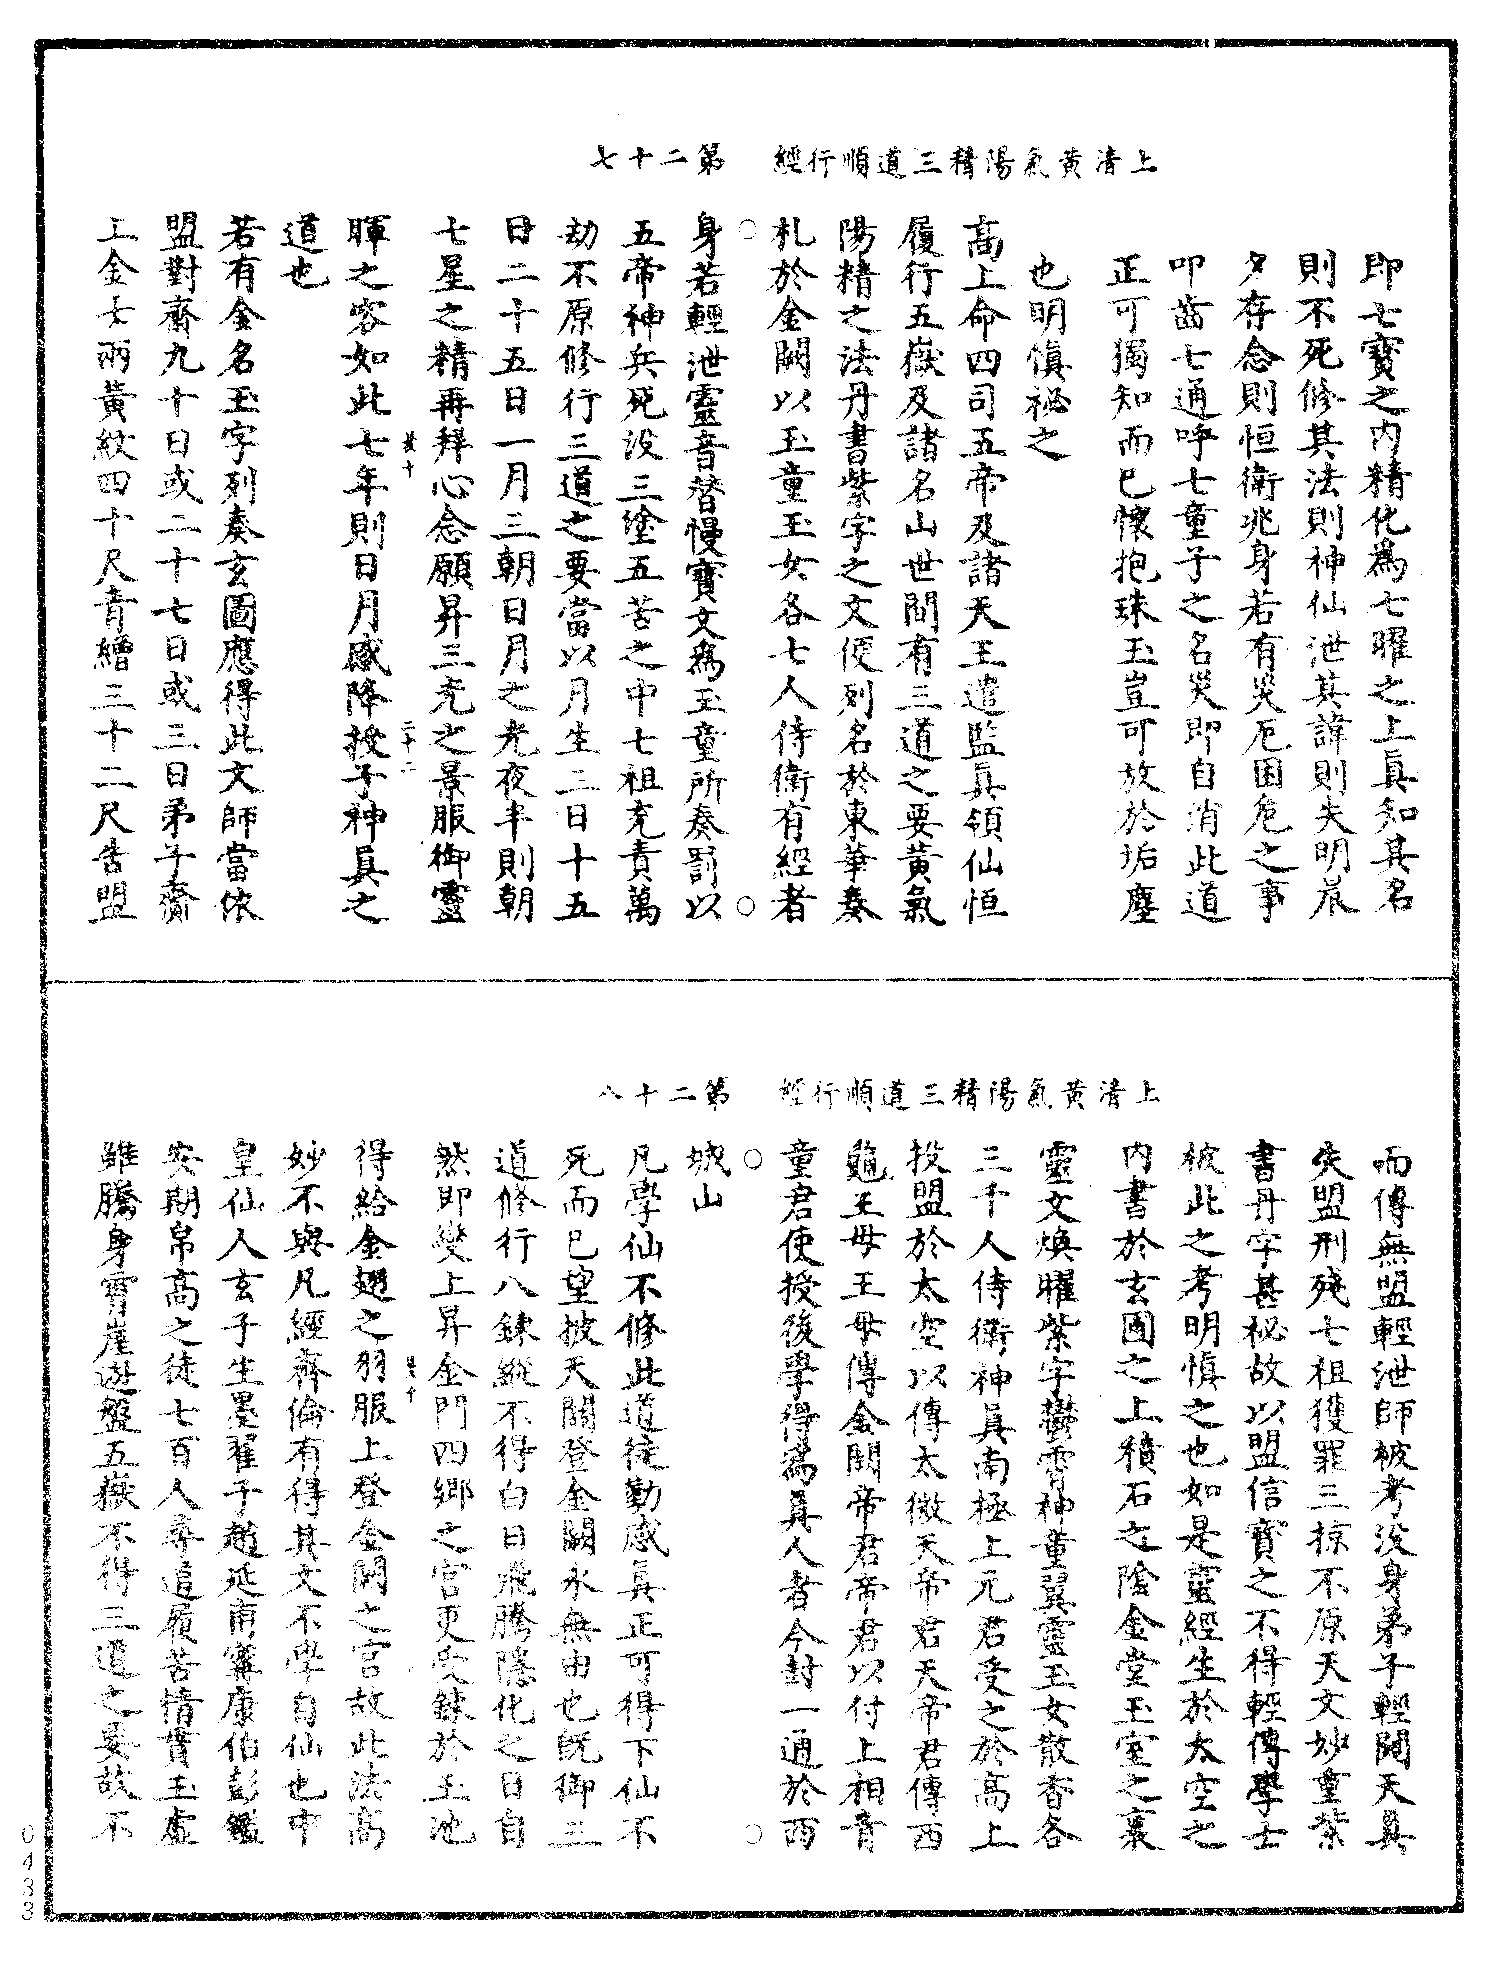 上清黃氣陽精三道順行經　第二十七
即七寶之內精化為七曜之上真知其名
則不死修其法則神仙泄其諱則失明晨
夕存念則恒衛兆身若有災厄困危之事
叩齒七通呼七童子之名災即自消此道
正可獨知而已懷抱珠玉豈可放於垢塵
也明慎祕之
高上命四司五帝及諸天王遣監真領仙恒
履行五嶽及諸名山世間有三道之要黃氣
陽精之法丹書紫字之文便列名於東華奏
札於金闕以玉童玉女各七人侍衛有經者
身若輕泄靈音替慢寶文為玉童所奏罰以
五帝神兵死没三塗五苦之中七祖充責萬
劫不原修行三道之要當以月生三日十五
日二十五日一月三朝日月之光夜半則朝
七星之精再拜心念願昇三光之景服御靈
暉之容如此七年則日月感降授子神真之
道也
若有金名玉字列奏玄圖應得此文師當依
盟對齋九十日或二十七日或三日弟子齎
上金七兩黃紋四十尺青繒三十二尺告盟
上清黃氣陽精三道順行經　第二十八
而傳無盟輕泄師被考没身弟子輕聞天真
失盟刑殘七祖獲罪三掠不原天文妙重紫
書丹字甚祕故以盟信寶之不得輕傳學士
被此之考明慎之也如是靈經生於太空之
內書於玄圃之上積石之陰金堂玉室之裏
靈文煥曜紫字鬱霄神童翼靈玉女散香各
三千人侍衛神真南極上元君受之於高上
投盟於太空以傳太微天帝君天帝君傳西
龜王母王母傳金闕帝君帝君以付上相青
童君使授後學得為真人者今封一通於西
城山
凡學仙不修此道徒勤感真正可得下仙不
死而已望披天關登金闕永無由也既御三
道修行八鍊縱不得白日飛騰隱化之日自
然即變上昇金門四鄉之宮更受鍊於玉池
得給金翅之羽服上登金闕之宮故此法高
妙不與凡經齊倫有得其文不學自仙也中
皇仙人玄子生墨翟子趙延甫甯康伯彭鏗
安期帛高之徒七百人尋道履苦情貫玉虛
雖騰身霄崖遊盤五嶽不得三道之要故不
0433